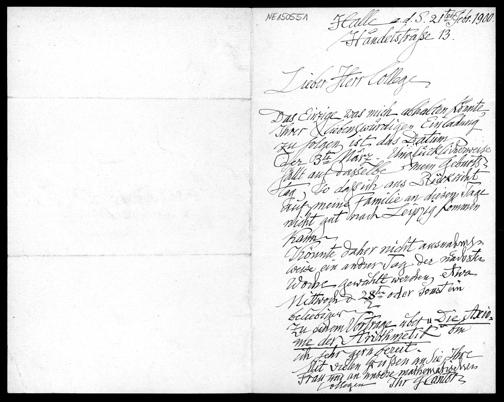 NE150551
Halle a. d. S. 21ten Febr. 1900
Händelstraße 13.
Lieber Herr College,
Das Einzige was mich abhalten könnte
Ihrer liebenswürdigen Einladung
zu folgen ist das Datum
der 3te März. Unglücklicherweise
fällt auf dasselbe mein Geburts-
tag, so daß ich aus Rücksicht
auf meine Familie an diesem Tage
nicht gut nach Leipzig kommen
kann.
Könnte daher nicht ausnahms-
weise ein andrer Tag der nächsten
Woche gewählt werden, etwa
Mittwoch d 28te oder sonst ein
beliebiger?
Zu einem Vortrage über „Die Axio-
me der Arithmetik" bin
ich sehr gern bereit.
Mit vielen Grüßen an Sie, Ihre
Frau und an unsere mathematischen
Collegen Ihr G Cantor